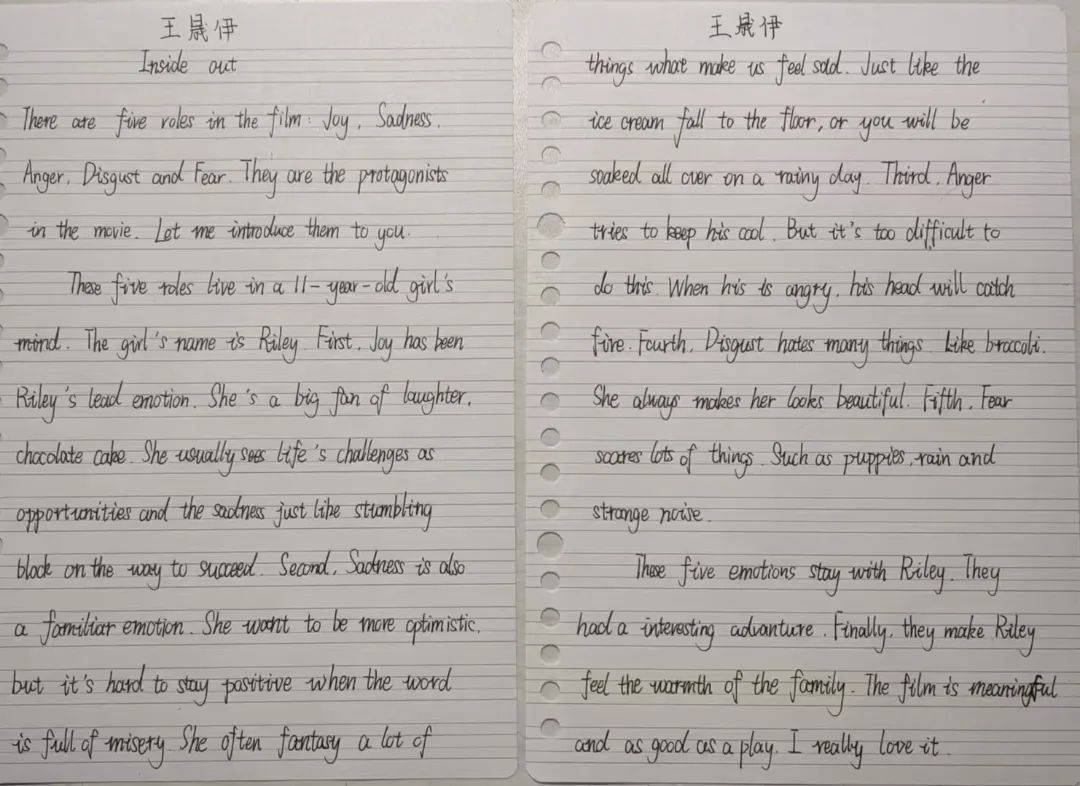 王晟伊
Inside out
There are five roles in the film: Joy, Sadness,
Anger, Disgust and Fear. They are the protagonists
in the movie. Let me introduce them to you.
These five roles live in a 11-year-old girl's
mind. The girl's name is Riley. First, Joy has been
Riley's lead emotion. She's a big fan of laughter,
chocolate cake. She usually sees life's challenges as
opportunities and the sadness just like stumbling
block on the way to succeed. Second, Sadness is also
a familiar emotion. She want to be more optimistic,
but it's hard to stay positive when the word
is full of misery. She often fantasy a lot of
王晟伊
things what make us feel sad. Just like the
ice cream fall to the floor, or you will be
soaked all over on a rainy day. Third, Anger
tries to keep his cool. But it's too difficult to
do this. When his is angry, his head will catch
fire. Fourth, Disgust hates many things. Like broccoli.
She always makes her looks beautiful. Fifth, Fear
scares lots of things. Such as puppies, rain and
strange noise.
These five emotions stay with Riley. They
had a interesting advanture. Finally, they make Riley
feel the warmth of the family. The film is meaningful
and as good as a play. I really love it.